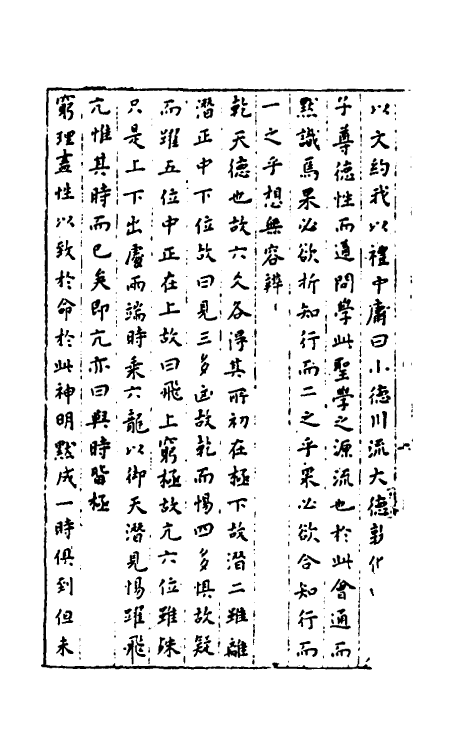 以文約我以禮中庸曰小德川流大德敦化
子尊德性而道問學此聖學之源流也於此會通而
默識焉果必欲析知行而二之乎果必欲合知行而
一之乎想無容辨
乾天德也故六爻各得其所初在極下故潛二雖離
潛正中下位故曰見三多凶故乾而惕四多懼故疑
而躍五位中正在上故曰飛上窮極故亢六位雖殊
只是上下出處兩端時乘六龍以御天潛見惕躍飛
亢惟其時而已矣即亢亦曰與時皆極
窮理盡性以致於命於此神明默成一時俱到但未